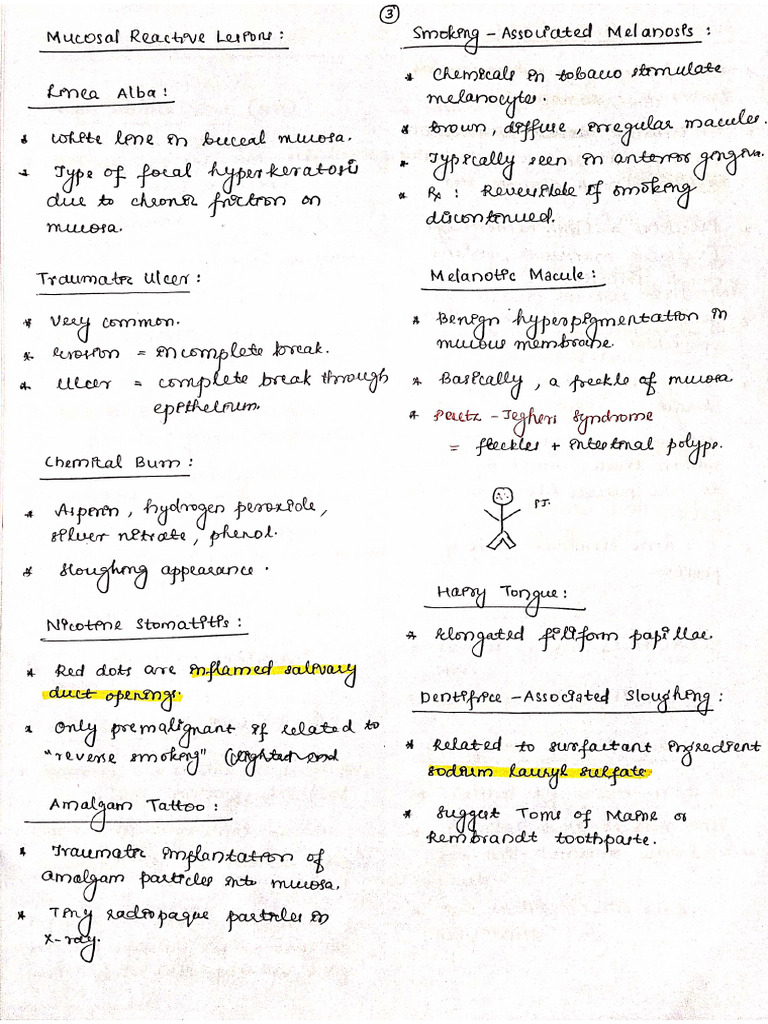 3
Mucosal Reactive Lesions :
Linea Alba :
* White line in buccal mucosa.
* Type of focal hyperkeratosis
due to chronic friction on
mucosa.
Traumatic Ulcer :
* Very common.
* Erosion = incomplete break.
* Ulcer = complete break through
epithelium.
Chemical Burn :
* Aspirin, hydrogen peroxide,
silver nitrate, phenol.
* Sloughing appearance.
Nicotine Stomatitis :
* Red dots are inflamed salivary
duct openings.
* Only premalignant if related to
"reverse smoking" (lighted end
Amalgam Tattoo :
* Traumatic implantation of
amalgam particles into mucosa.
* Tiny radiopaque particles in
X-ray.
Smoking - Associated Melanosis :
* Chemicals in tobacco stimulate
melanocytes.
* Brown, diffuse, irregular macules.
* Typically seen in anterior gingiva.
* Rx : Reversible if smoking
discontinued.
Melanotic Macule :
* Benign hyperpigmentation in
mucous membrane.
* Basically, a freckle of mucosa
* Peutz - Jeghers Syndrome
= freckles + intestinal polyps.
PJ.
Hairy Tongue :
* Elongated filiform papillae.
Dentifrice - Associated Sloughing :
* Related to surfactant ingredient
sodium lauryl sulfate
* Suggest Toms of Maine or
Rembrandt toothpaste.